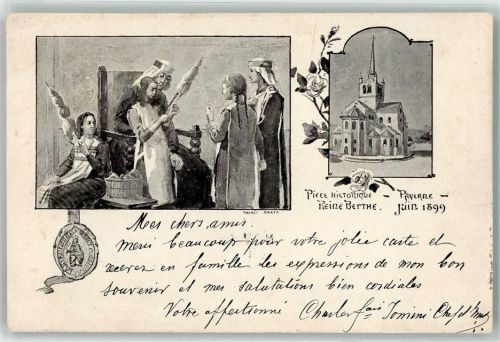 Pièce Historique - Payerne -
Reine Berthe. Juin 1899
Mes chers amis,
Merci beaucoup pour votre jolie carte et
en famille les expressions de mon bon
souvenir et mes salutations bien cordiales
Votre affectionné Charles fais Jomini